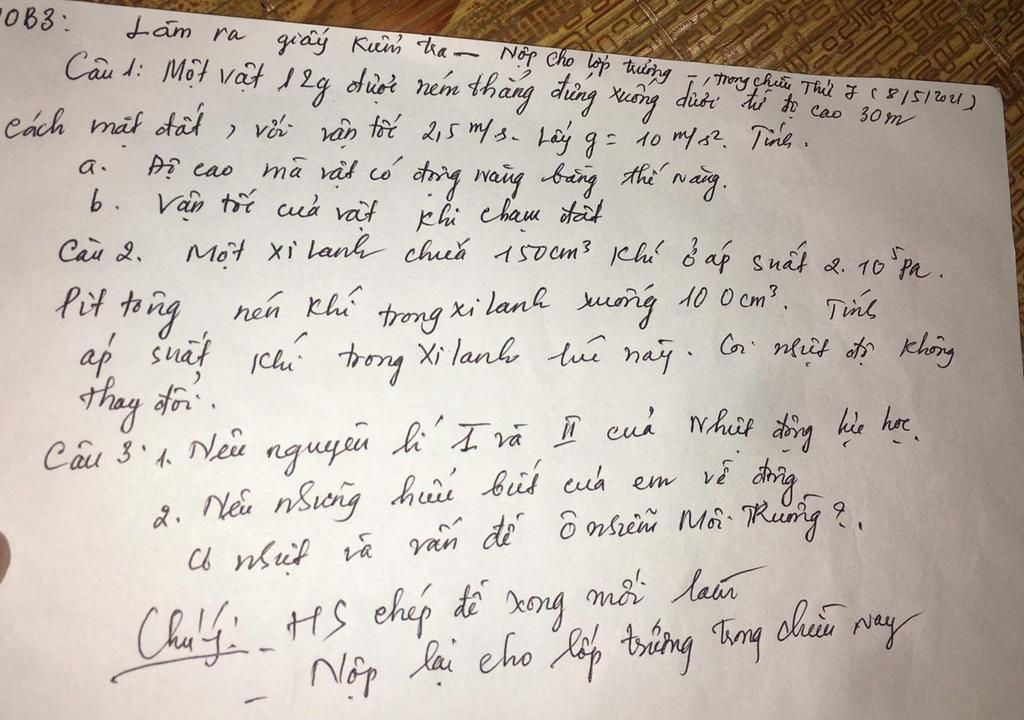 10B3: Làm ra giấy kiểm tra - Nộp cho lớp trưởng, trong chiều Thứ 7 (8/5/2021)
Câu 1: Một vật 12g được ném thẳng đứng xuống dưới từ độ cao 30m
cách mặt đất, với vận tốc 2,5 m/s. Lấy g = 10 m/s². Tính.
a. Độ cao mà vật có động năng bằng thế năng.
b. Vận tốc của vật khi chạm đất
Câu 2. Một xilanh chứa 150cm³ khí ở áp suất 2.10⁵ Pa.
Pit tông nén khí trong xilanh xuống 100cm³. Tính
áp suất khí trong xilanh lúc này. Coi nhiệt độ không
thay đổi.
Câu 3: 1. Nêu nguyên lí I và II của Nhiệt động lực học.
2. Nêu những hiểu biết của em về động
cơ nhiệt và vấn đề ô nhiễm Môi Trường?.
Chú ý: - HS chép đề xong mới làm
- Nộp lại cho lớp trưởng trong chiều nay